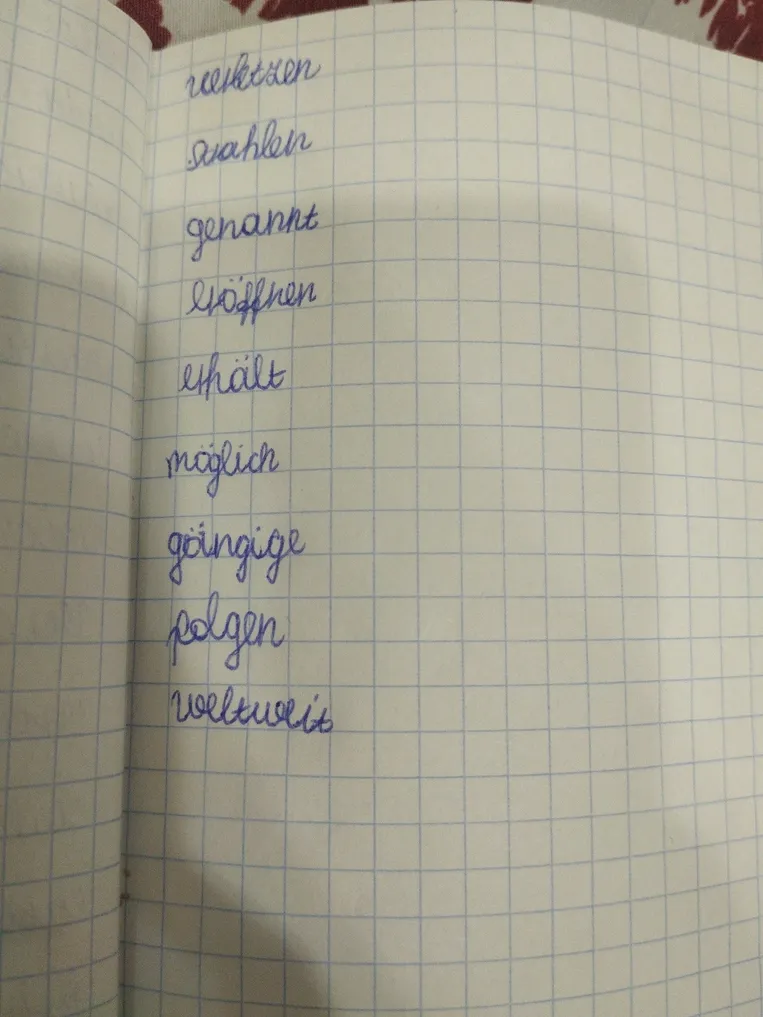 verletzen
wahlen
genannt
eröffnen
erhält
möglich
gängige
folgen
weltweit